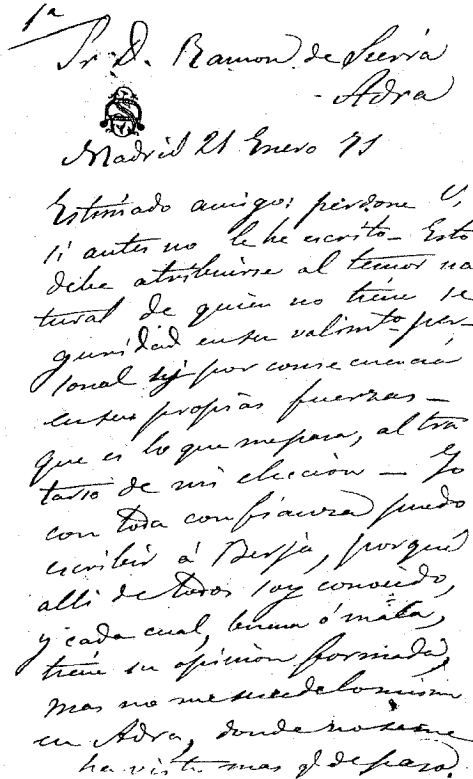 1ª
Sr. D. Ramon de Sierra
- Adra
Madrid 21 Enero 71
Estimado amigo: perdone V,
si antes no le he escrito - Esto
debe atribuirse al temor na
tural de quien no tiene se
guridad en su valimto per-
sonal y por consecuencia
en sus propias fuerzas -
que es lo que me pasa, al tra
tarse de mi eleccion - Yo
con toda confianza puedo
escribir á Berja, porque
alli de todos soy conocido,
y cada cual, buena ó mala,
tiene su opinion formada,
mas no me sucede lo mismo
en Adra, donde no se me
ha visto mas q. de paso.